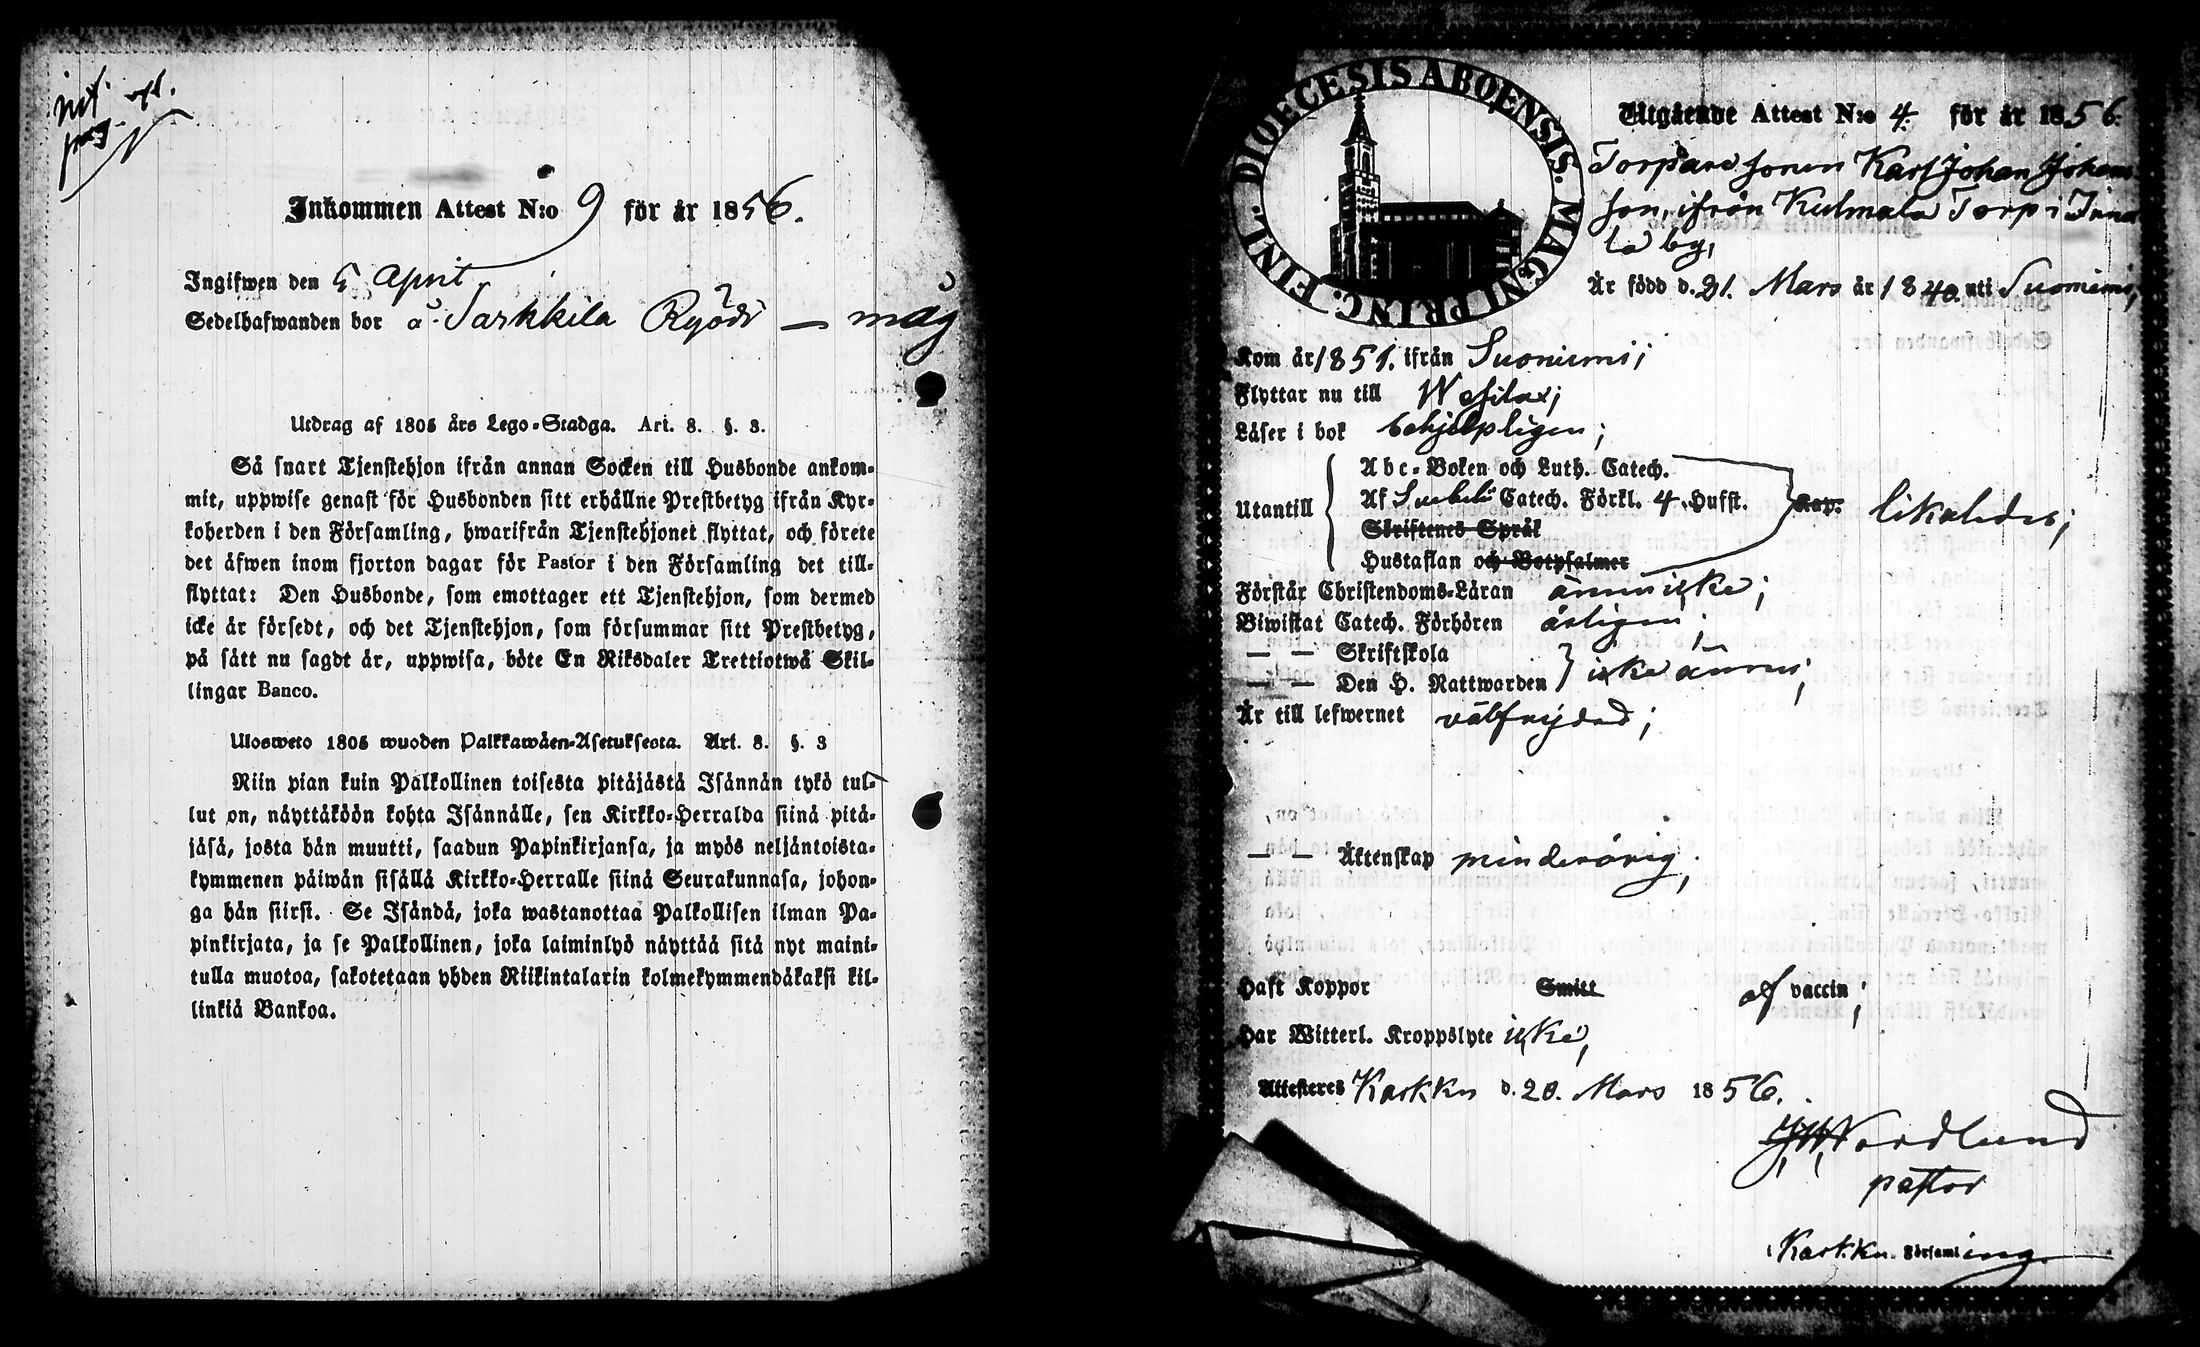 Inkommen Attest N:o 9 för år 1856.
Ingifwen den 5 April
Sedelhafwanden bor å Sarkkila Ryödi — måg
Utdrag af 1805 års Lego-Stadga. Art. 8. §. 3.
Så snart Tjenstehjon ifrån annan Socken till Husbonde ankom-
mit, uppwise genast för Husbonden sitt erhållne Prestbetyg ifrån Kyr-
koherden i den Församling, hwarifrån Tjenstehjonet flyttat, och förete
det äfwen inom fjorton dagar för Pastor i den Församling det till-
flyttat: Den Husbonde, som emottager ett Tjenstehjon, som dermed
icke är försedt, och det Tjenstehjon, som försummar sitt Prestbetyg,
på sätt nu sagdt är, uppwisa, böte En Riksdaler Trettiotwå Skil-
lingar Banco.
Ulosweto 1805 wuoden Palkkawäen-Asetuksesta. Art. 8. §. 3
Niin pian kuin Palkollinen toisesta pitäjästä Isännän tykö tul-
lut on, näyttäköön kohta Isännälle, sen Kirkko-Herralda siinä pitä-
jäsä, josta hän muutti, saadun Papinkirjansa, ja myös neljäntoista-
kymmenen päiwän sisällä Kirkko-Herralle siinä Seurakunnasa, johon-
ga hän siirsi. Se Isändä, joka wastanottaa Palkollisen ilman Pa-
pinkirjata, ja se Palkollinen, joka laiminlyö näyttää sitä nyt maini-
tulla muotoa, sakotetaan yhden Riikintalarin kolmekymmendäkaksi kil-
linkiä Bankoa.
DIOECESIS ABOENSIS. MAGNI PRINC. FINL.
Utgående Attest N:o 4. för år 1856.
Torpare sonen Karl Johan Johans
son, ifrån Kulmala Torp i
la by,
Är född d. 21. Mars år 1840. uti Suoniemi,
Kom år 1851. ifrån Suoniemi;
Flyttar nu till Wesilax;
Läser i bok behjelpligen;
Abc-Boken och Luth. Catech.
Utantill Af Catech. Förkl. 4. Hufst. Kap. likaledes;
Skriftenes Språk
Hustaflan och Botpsalmer
Förstår Christendoms-Läran ännu icke;
Biwistat Catech. Förhören årligen;
— — Skriftskola
— — Den H. Nattwarden icke ännu;
Är till lefwernet välfrejdad;
— — Äktenskap minderårig;
Haft Koppor Smitt af vaccin;
Har Witterl. Kroppslyte icke,
Attesteres Karkku d. 20. Mars 1856.
Nordlund
pastor
i Karkku Församling